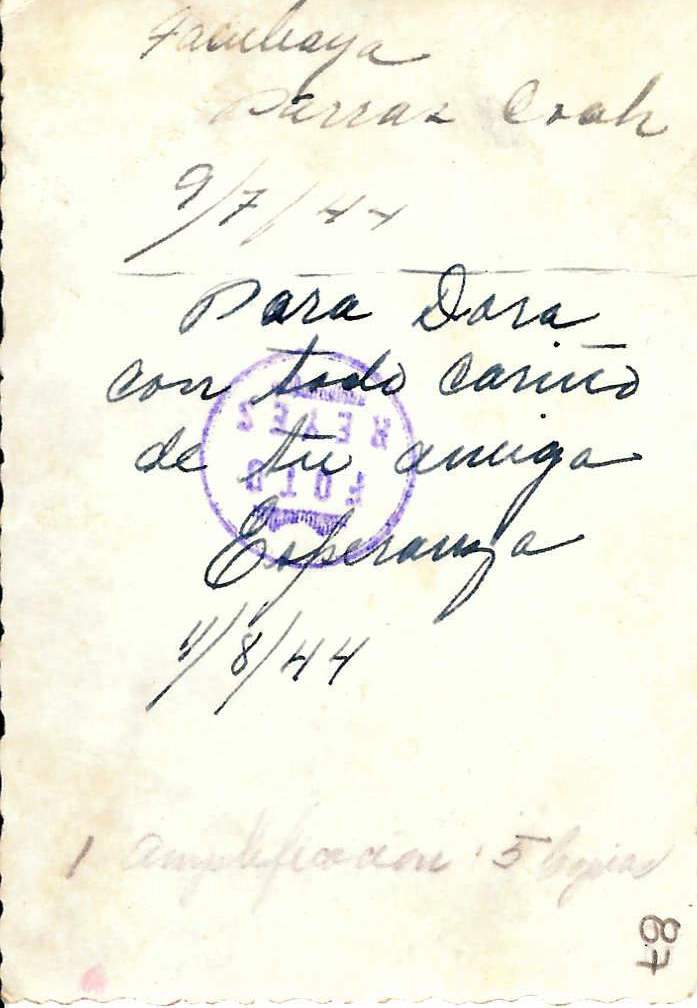 Tacubaya
Parras Coah
9/7/44
Para Dora
con todo cariño
de tu amiga
Esperanza
11/8/44
REYEZ
FOTO
1 amplificacion 5 Copias
87